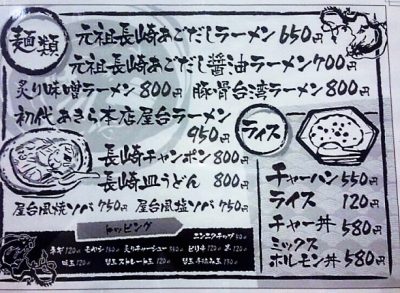 麺類
元祖長崎あごだしラーメン 650円
元祖長崎あごだし醤油ラーメン 700円
炙り味噌ラーメン 800円 豚骨台湾ラーメン 800円
初代あきら本店屋台ラーメン
950円
長崎チャンポン 800円
長崎皿うどん 800円
屋台風焼ソバ 750円 屋台風塩ソバ 750円
ライス
チャーハン 550円
ライス 120円
チャー丼 580円
ミックス
ホルモン丼 580円
トッピング